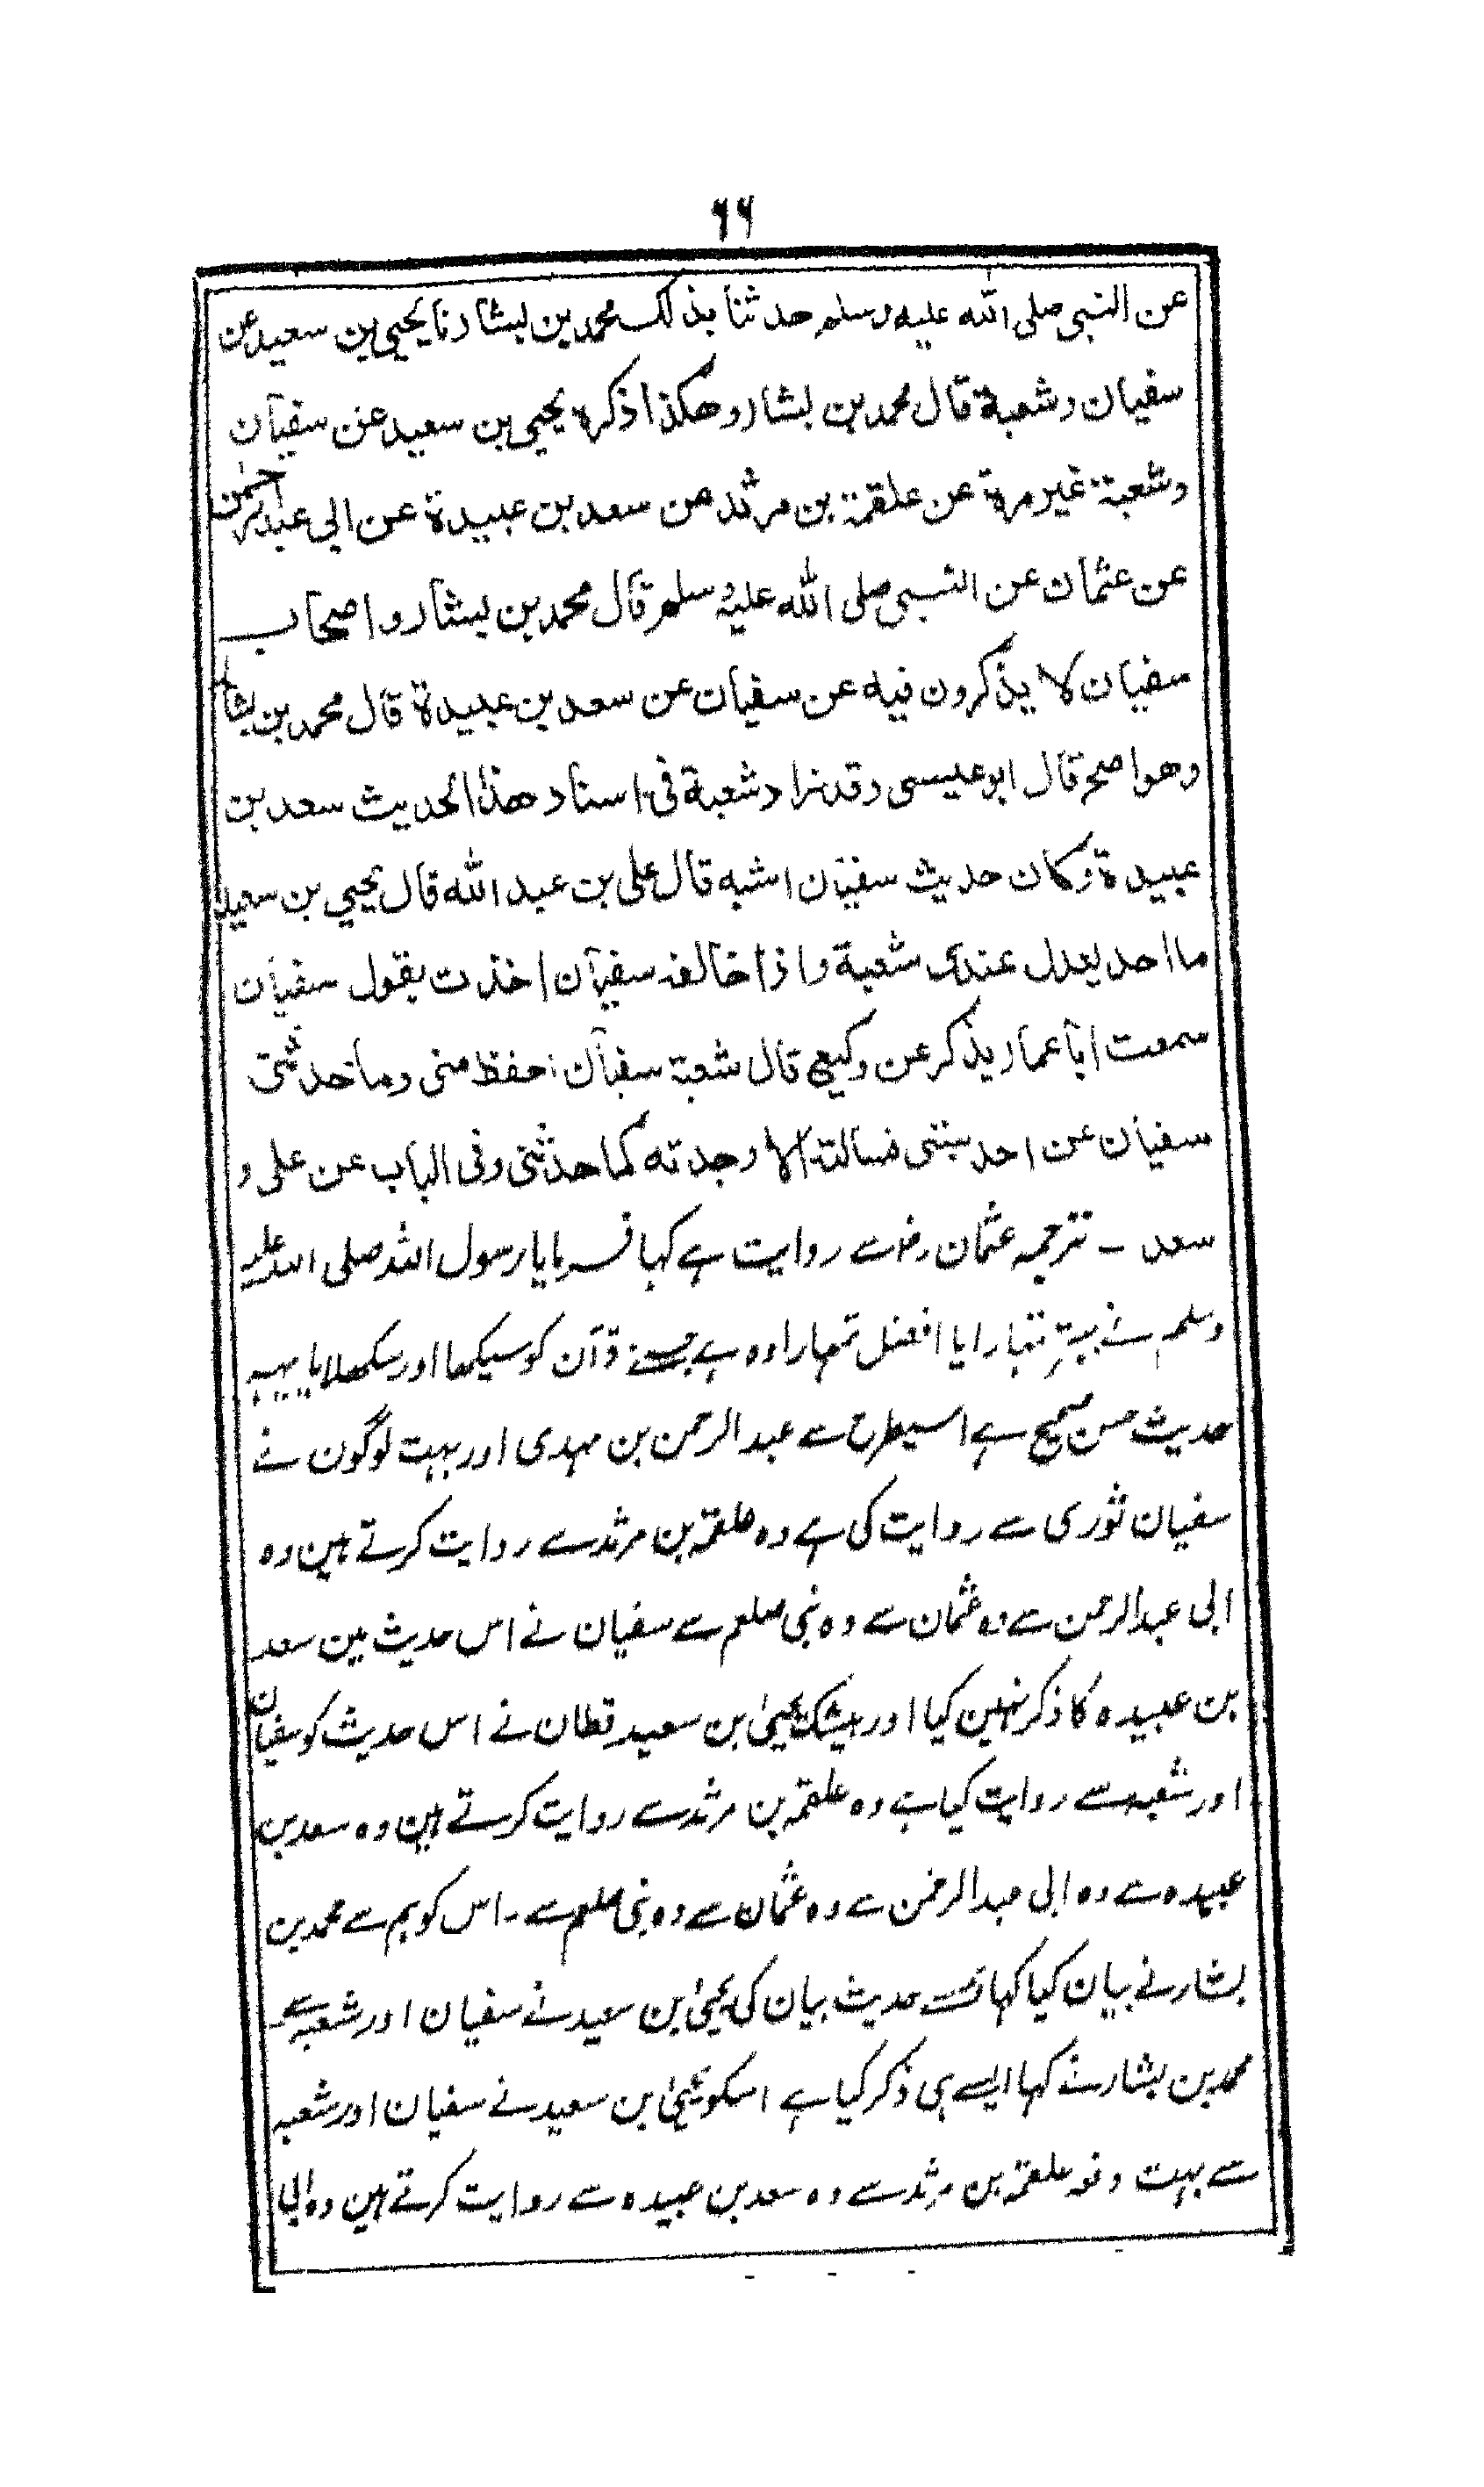 ۶۶
عن النبی صلی الله علیه وسلم حدثنا بذلک محمد بن بشار نا یحیی بن سعید عن
سفیان وشعبة قال محمد بن بشار وهکذا ذکره یحیی بن سعید عن سفیان
وشعبة غیر مرة عن علقمة بن مرثد عن سعد بن عبیدة عن ابی عبد الرحمن
عن عثمان عن النبی صلی الله علیه وسلم قال محمد بن بشار واصحاب
سفیان لا یذکرون فیه عن سفیان عن سعد بن عبیدة قال محمد بن بشار
وهو اصح قال ابو عیسی وقد زاد شعبة فی اسناد هذا الحدیث سعد بن
عبیدة وکان حدیث سفیان اشبه قال علی بن عبد الله قال یحیی بن سعید
ما احد یعدل عندی شعبة واذا خالفه سفیان اخذت بقول سفیان
سمعت ابا عمار یذکر عن وکیع قال شعبة سفیان احفظ منی وما حدثنی
سفیان عن احد بشئی فسالته الا وجدته کما حدثنی وفی الباب عن علی و
سعد ۔ ترجمہ عثمان رضہ سے روایت ہے کہا فرمایا رسول اللہ صلی اللہ علیہ
وسلم نے بہتر تمہارا یا افضل تمہارا وہ ہے جسنے قرآن کو سیکھا اور سکھلایا یہہ
حدیث حسن صحیح ہے اسیطرح سے عبد الرحمن بن مہدی اور بہت لوگون نے
سفیان ثوری سے روایت کی ہے وہ علقمہ بن مرثد سے روایت کرتے ہین وہ
ابی عبد الرحمن سے وہ عثمان سے وہ نبی صلعم سے سفیان نے اس حدیث مین سعد
بن عبیدہ کا ذکر نہین کیا اور بیشک یحییٰ بن سعید قطان نے اس حدیث کو سفیان
اور شعبہ سے روایت کیا ہے وہ علقمہ بن مرثد سے روایت کرتے ہین وہ سعد بن
عبیدہ سے وہ ابی عبد الرحمن سے وہ عثمان سے وہ نبی صلعم سے ۔ اس کو ہم سے محمد بن
بشار نے بیان کیا کہا حدیث بیان کی یحییٰ بن سعید نے سفیان اور شعبہ سے
محمد بن بشار نے کہا ایسے ہی ذکر کیا ہے اسکو یحییٰ بن سعید نے سفیان اور شعبہ
سے بہت دفعہ علقمہ بن مرثد سے وہ سعد بن عبیدہ سے روایت کرتے ہین وہ ابی